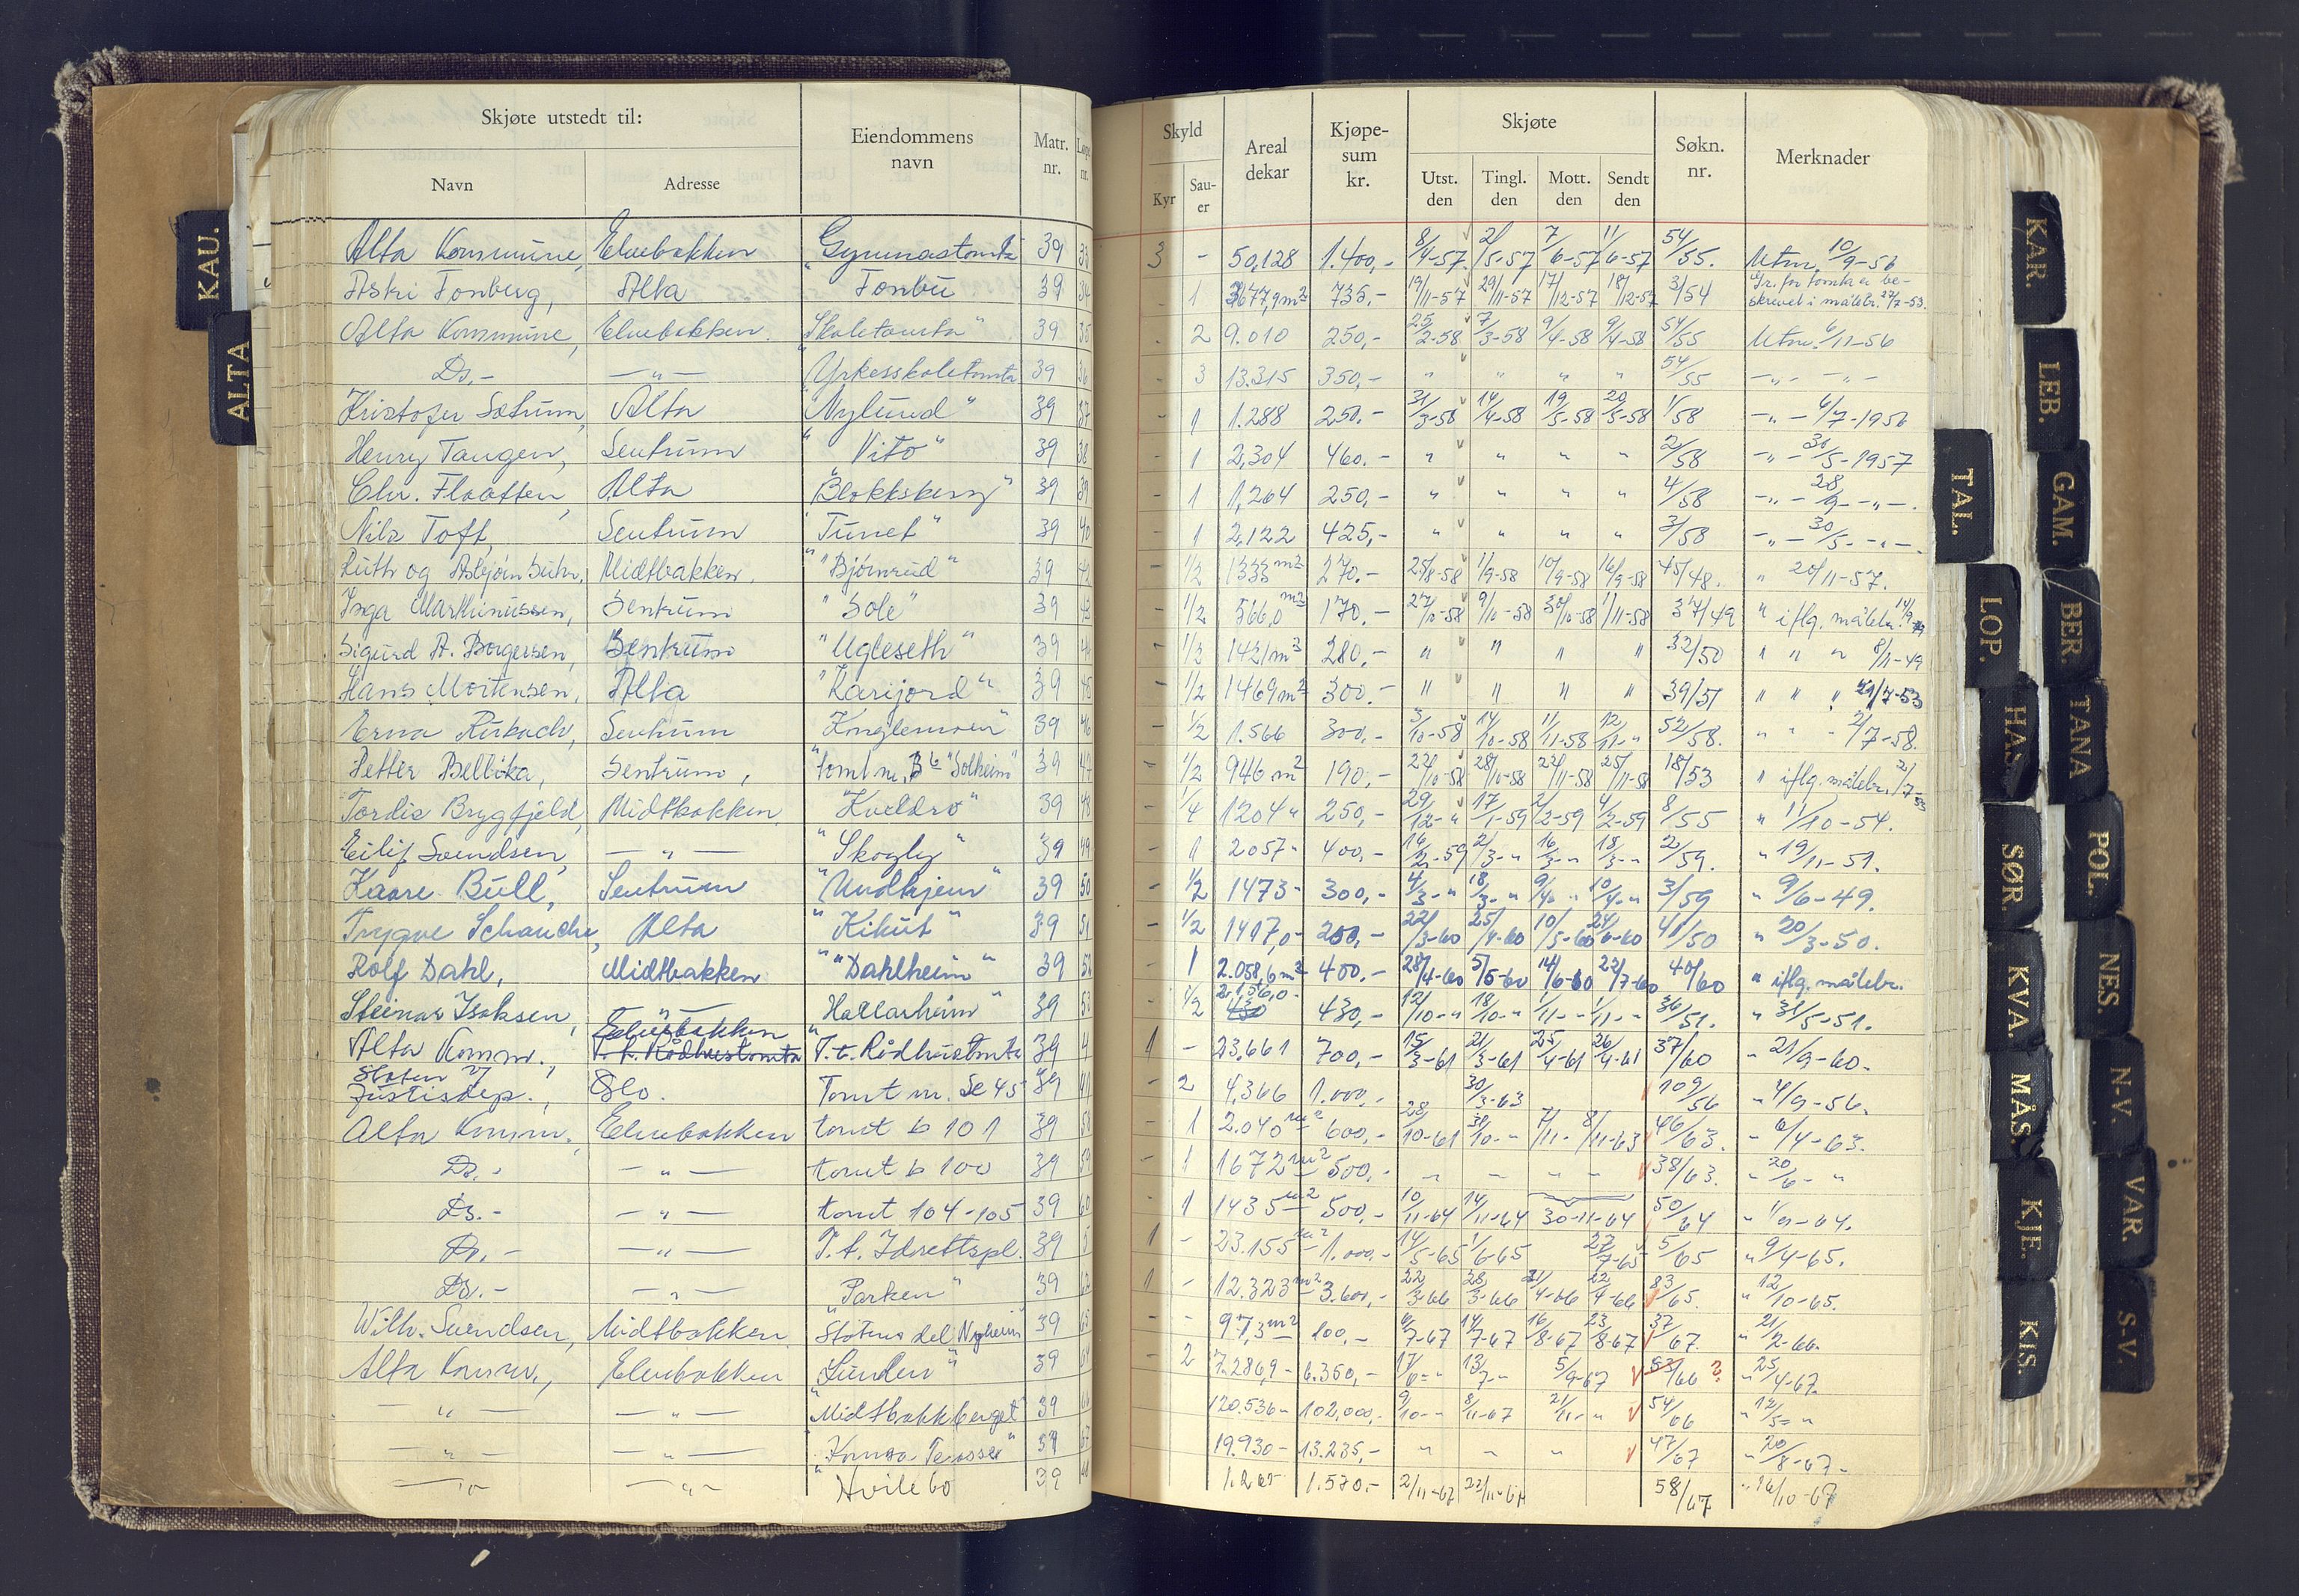 Skjøte utstedt til: Eiendommens navn Matr. nr. Løpe nr. Skyld Areal dekar Kjøpe-sum kr. Skjøte Søkn. nr. Merknader
Navn Adresse Kyr Sau-er Utst. den Tingl. den Mott. den Sendt den
Alta Kommune, Elvebakken "Gymnastomta 39 33 3 - 50,128 1.400,- 8/4-57 2/5-57 7/6-57 11/6-57 54/55. Utm. 10/9-56
Astri Fonberg, Alta Fonbu 39 34 - 1 3677,9m² 735,- 19/11-57 29/11-57 17/12-57 18/12-57 3/54 Gr. for tomta er be-
skrevet i målebr. 27/7-53.
Alta Kommune, Elvebakken. "Skoletomta" 39 35 2 9.010 250,- 25/2-58 7/3-58 9/4-58 9/4-58 54/55 Utm. 6/11-56
Ds.- —"— "Yrkesskoletomta 39 36 - 3 13.315 350,- " " " " 54/55 —"— —"—
Kristofer Sætrum, Alta "Nylund" 39 37 - 1 1.288 250.- 31/3-58 14/4-58 19/5-58 20/5-58 1/58 —"— 6/7-1956
Henry Tangen, Sentrum "Vito" 39 38 - 1 2,304 460.- " " " " 2/58 —"— 30/5-1957
Chr. Flaatten, Alta "Blokksberg" 39 39 - 1 1,264 250,- " " " " 4/58 —"— 28/9-"-.
Nils Toft, Sentrum "Tunet" 39 40 - 1 2,122 425,- " " " " 3/58 —"— 30/5-"-.
Ruth og Asbjørn Suhr, Midtbakken. "Bjørnrud" 39 42 - 1/2 1333 m² 270.- 25/8-58 1/9-58 10/9-58 16/9-58 45/48. " 20/11-57.
Inga Marthinussen, Sentrum "Sole" 39 43 - 1/2 566,0 m² 170.- 27/10-58 9/10-58 30/10-58 1/11-58 37/49 " iflg. målebr. 14/9-49
Sigurd A. Borgersen, Sentrum "Ugleseth" 39 44 - 1/2 1421m² 280,- " " " " 32/50 " " " 8/11-49
Hans Mortensen, Alta "Karijord" 39 45 - 1/2 1469m² 300.- " " " " 39/51 " " " 21/7-53
Erna Sentrum "Konglemoen" 39 46 - 1/2 1.566 300,- 3/10-58 14/10-58 11/11-58 12/11-" 52/58. " " " 2/7-58.
Petter Belbika, Sentrum, "tomt nr. "Solheim" 39 47 - 1/2 946 m² 190,- 22/10-58 28/10-58 24/11-58 25/11-58 18/53 " iflg. målebr. 2/7-53
Tordis Brygfjeld, Midtbakken. "Kveldro" 39 48 - 1/4 1204 " 250,- 29/12-" 17/1-59 2/2-59 4/2-59 8/55 " 11/10-54.
Eilif Svendsen, —"— "Skogly" 39 49 - 1 2057 " 400,- 16/2-59 2/3-" 16/3-" 18/3-" 2/59. " 19/11-59.
Kaare Bull, Sentrum "Undhjem" 39 50 - 1/2 1473 - 300,- 4/3-" 18/3-" 9/4-" 10/4-" 3/59 " 9/6-49.
Trygve Schanche, Alta "Kikut" 39 51 - 1/2 1417,0 - 200,- 22/3-60 25/4-60 10/5-60 24/6-60 41/50 " 20/3-50.
Rolf Dahl, Midtbakken "Dahlheim" 39 52 - 1 2.058,6 m² 400.- 28/4-60 5/5-60 14/6-60 22/7-60 40/60 " iflg. målebr.
Steinar Isaksen, —"— Hallarheim" 39 53 - 1/2 2,156,0- 430,- 12/10-" 18/10-" 1/11-" 1/11-" 36/51. " 31/5-51.
Alta Komm., Elvebakken T.t. Rådhustomta "T.t. Rådhustomta 39 4 1 - 23,661 700,- 15/3-61 21/3-61 25/4-61 26/4-61 37/60 " 21/9-60.
Staten v/
Justisdep., Oslo. Tomt nr. Se 45 39 41 - 2 4,366 1.000,- 30/3-63 109/56 " 4/9-56.
Alta Komm. Elvebakken tomt b 101 39 58 - 1 2.040 m² 600,- 28/10-61 31/10-" 7/11- 8/11-63 46/63. " 6/4-63.
Ds.- —"— tomt b 100 39 59 - 1 1672 m² 500,- " " " " 38/63. " 20/6- "
Ds.- —"— tomt 104-105 39 60 - 1 1435 m² 500,- 10/11-64 14/11-64 30-11-64 50/64 " 1/9-64.
Ds.- —"— T.t. Idrettspl. 39 5 1 - 23.155 m² 1.000,- 14/5-65 1/6-65 27/7-65 5/65 " 9/4-65.
Ds.- —"— "Parken" 39 62 1 - 12.323 m² 3.600,- 22/3-66 28/3-66 21/4-66 22/4-66 83/65. " 12/10-65.
Wilh. Svendsen, Midtbakken "Støtner del Nyheim" 39 63 - - 97,3 m² 100,- 4/7-67 14/7-67 16/8-67 23/8-67 37/67. " 21/2-66.
Alta Komm., Elvebakken "Lunden" 39 64 - 2 7.286,9 - 6.350,- 17/6-" 13/7-" 5/9-67 85/66 ? " 25/4-67.
—"— —"— "Midtbakkberget" 39 66 120.536 - 102,000,- 9/10-" 8/11-67 21/11-" 54/66 " 12/5- "
—"— —"— "Komsa Terasse" 39 67 19.930 - 13.235,- " " " 47/67 " 20/8-67-
—"— —"— "Hvilebo 39 68 1.265 1.570.- 2/11-67 22/11-67 58/67 " 16/10-67
KAU.
ALTA
KAR.
LEB.
GAM.
TAL.
BER.
LOP.
TANA
HAS.
POL.
SØR.
NES.
KVA.
N-V.
MÅS.
VAR.
KJE.
S-V.
KIS.